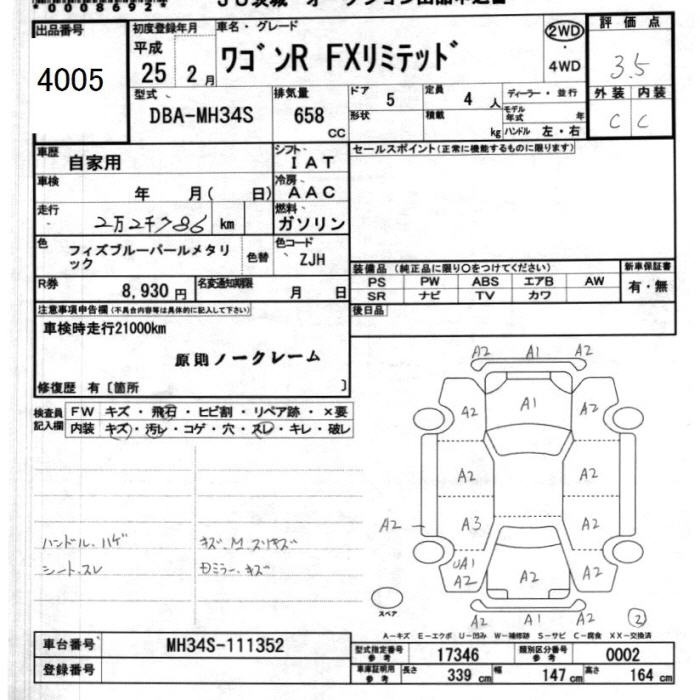 *008692*
出品番号 初度登録年月 車名・グレード 2WD・4WD 評価点
4005 平成 25 2月 ワゴンR FXリミテッド 3.5
型式 DBA-MH34S 排気量 658 CC ドア 5 定員 4 人 ディーラー・並行 外装 内装
形状 積載 kg モデル年式 年 ハンドル 左・右 C C
車歴 自家用 シフト IAT セールスポイント(正常に機能するものに限ります)
車検 年 月( 日) 冷房 AAC
走行 2万2千786 km 燃料 ガソリン
色 フィズブルーパールメタリック 色替 色コード ZJH
装備品(純正品に限り○をつけてください) 新車保証書
PS PW ABS エアB AW 有・無
SR ナビ TV カワ
R券 8,930円 名変通知期限 月 日
後日品
注意事項申告欄(不具合内容等は具体的に記入して下さい)
車検時走行21000km
原則ノークレーム
修復歴 有〔箇所 〕
検査員記入欄 FW キズ・飛石・ヒビ割・リペア跡・×要
内装 キズ・汚レ・コゲ・穴・スレ・キレ・破レ
A2 A1 A2
A2 A1 A2
A2 A2
A2 A3 A2
UA1 A2 A2 A2
A2 A1 A2
ハンドル、ハゲ
シート、スレ
スペア
2
A-キズ E-エクボ U-凹み W-補修跡 S-サビ C-腐食 XX-交換済
車台番号 MH34S-111352 型式指定番号 参考 17346 類別区分番号 参考 0002
登録番号 車庫証明用 参考 長さ 339 cm 幅 147 cm 高さ 164 cm